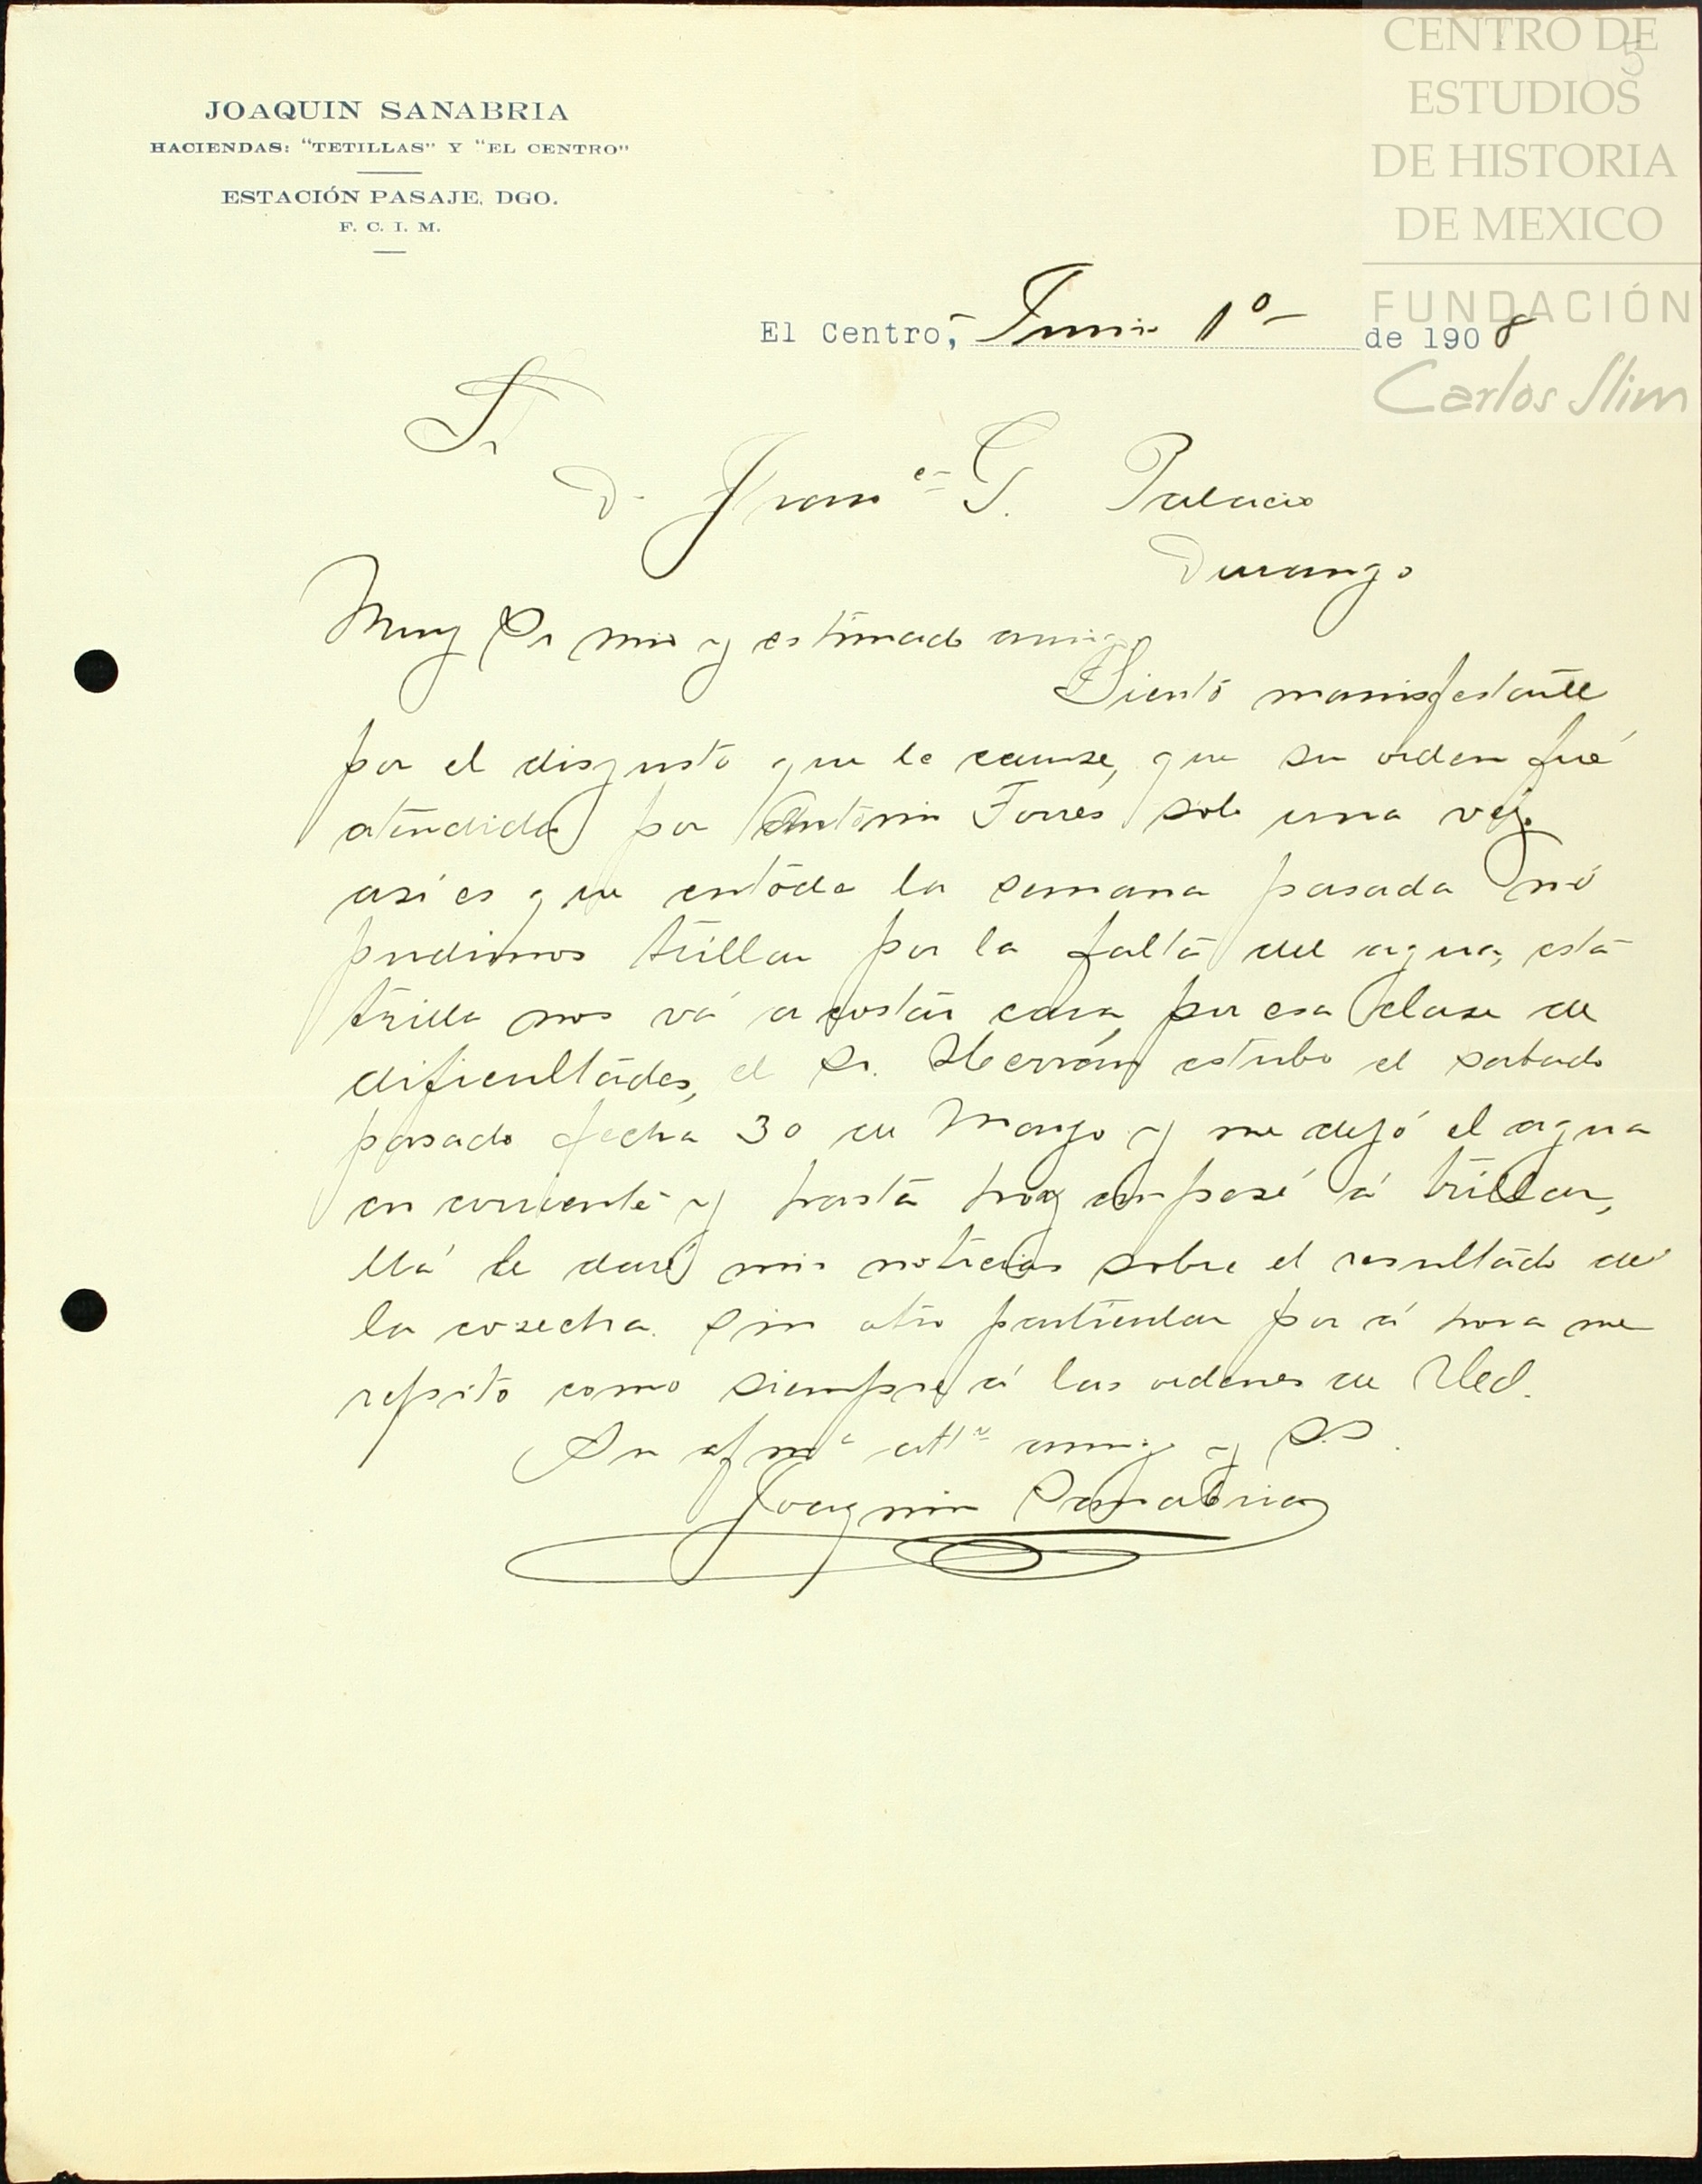 CENTRO DE
ESTUDIOS
DE HISTORIA
DE MEXICO
FUNDACIÓN
Carlos Slim
5
JOAQUIN SANABRIA
HACIENDAS: "TETILLAS" Y "EL CENTRO"
ESTACIÓN PASAJE, DGO.
F. C. I. M.
El Centro, Junio 1º de 1908
Sr
D. Franco G. Palacio
Durango
Muy Sr mio y estimado amigo
Siento manisfestarle
por el disgusto que le cause, que su orden fué
atendida por Antonio Torres solo una vez.
asi es que entoda la semana pasada nó
pudimos trillar por la falta del agua, esta
trilla nos vá a costar cara por esa clase de
dificultades, el Sr. Herrán estubo el sabado
pasado fecha 30 de Mayo y me dejó el agua
en corriente y hasta hoy empesé á trillar,
llá le daré mis noticias sobre el resultado de
la cosecha. Sin otro particular por á hora me
repito como siempre á las ordenes de Ued.
Su afmo atto amigo y S.S.
Joaquin Sanabria